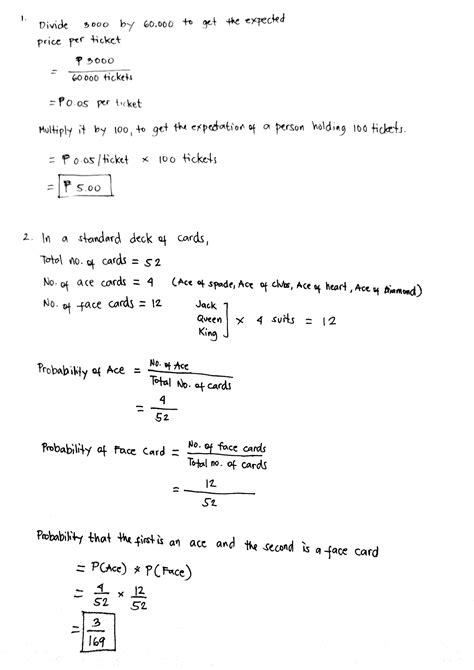 1. Divide 3000 by 60.000 to get the expected
price per ticket
= ₱ 3000 / 60 000 tickets
= ₱0.05 per ticket
Multiply it by 100, to get the expectation of a person holding 100 tickets.
= ₱ 0.05/ticket × 100 tickets
= ₱ 5.00
2. In a standard deck of cards,
Total no. of cards = 52
No. of ace cards = 4 (Ace of spade, Ace of clubs, Ace of heart, Ace of Diamond)
No. of face cards = 12 Jack
Queen
King ] × 4 suits = 12
Probability of Ace = No. of Ace / Total No. of cards
= 4 / 52
Probability of Face Card = No. of face cards / Total no. of cards
= 12 / 52
Probability that the first is an ace and the second is a face card
= P(Ace) * P(Face)
= 4/52 × 12/52
= 3/169